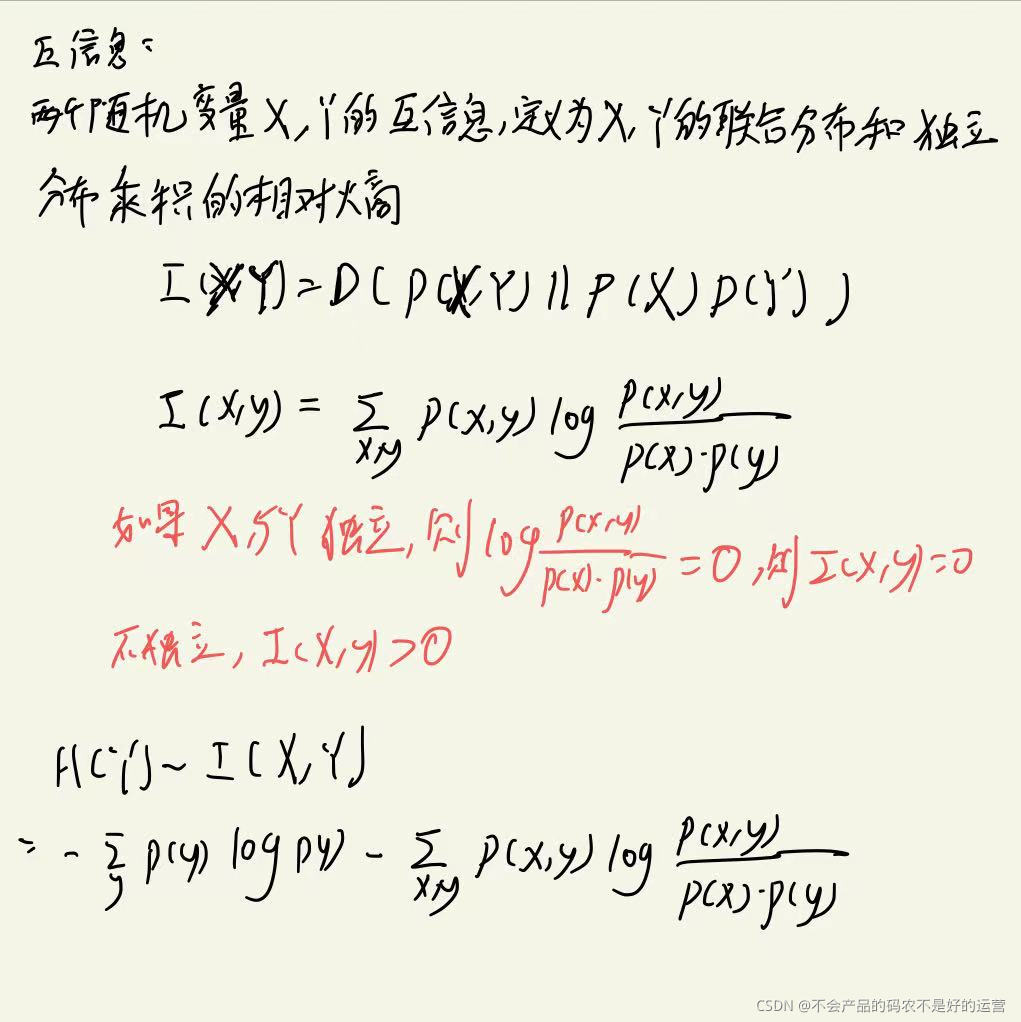 互信息:
两个随机变量X,Y的互信息,定义为X,Y的联合分布和独立
分布乘积的相对熵
I(X,Y)=D(P(X,Y)||P(X)P(Y))
I(x,y) = ∑x,y P(x,y) log P(x,y)/P(x)·P(y)
如果X,与Y独立,则log P(x,y)/P(x)·P(y) = 0,则I(x,y)=0
不独立,I(x,y)>0
H(Y)~I(X,Y)
= -∑y P(y) log Py) - ∑x,y P(x,y) log P(x,y)/P(x)·P(y)
CSDN @不会产品的码农不是好的运营